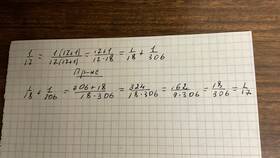 1/17 = 1(17+1)/17(17+1) = 17+1/17·18 = 1/18 + 1/306
1/18 + 1/306 = 306+18/18·306 = 324/18·306 = 18/306 = 1/17